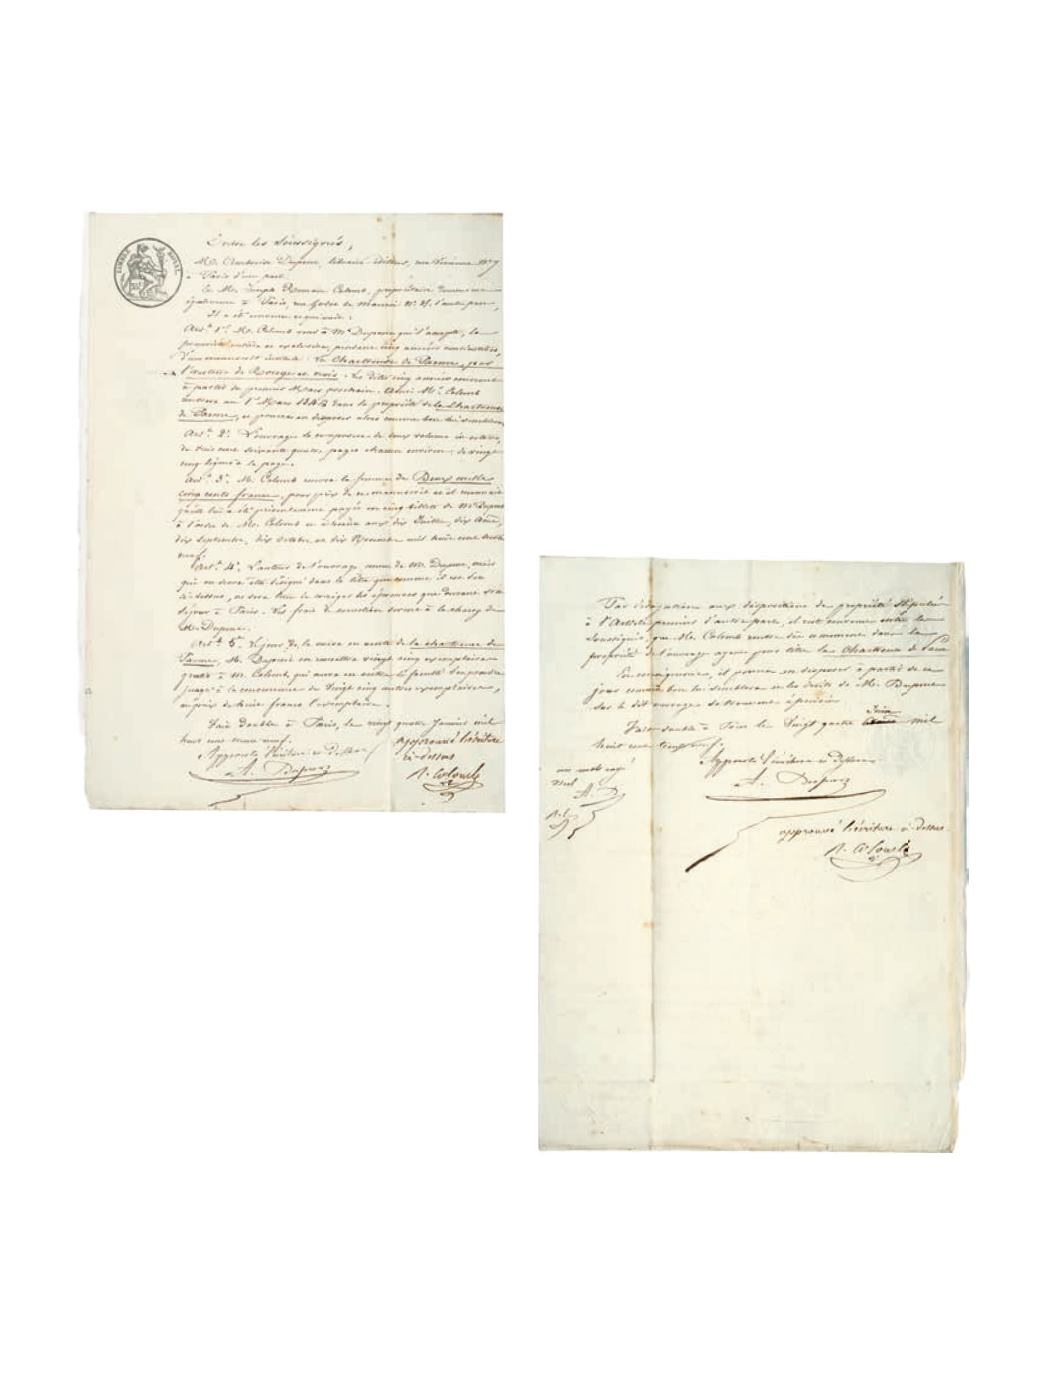 TIMBRE ROYAL
Entre les Soussignés,
M. Ambroise Dupont, libraire éditeur, rue Vivienne N° 7
à Paris d'une part.
Et M. Romain Colomb, propriétaire
également à Paris, rue N° d'autre part,
Il a été convenu ce qui suit :
Art. 1er. M. Colomb vend à Mr. Dupont qui l'accepte, la
propriété entière et exclusive, pendant cinq années consécutives,
d'un manuscrit intitulé La Chartreuse de Parme, par
l'auteur de Rouge et noir. Les dites cinq années courront
à partir du premier Mars prochain. Ainsi Mr. Colomb
au 1er Mars 1844 dans la propriété de la Chartreuse
de Parme, et pourra en disposer alors comme bon lui semblera.
Art. 2. L'ouvrage se composera de deux volumes in-octavo,
de trois cent soixante quatre pages chacun environ, de vingt
cinq lignes à la page.
Art. 3. M. Colomb la somme de Deux mille
cinq cents francs, pour prix de ce manuscrit et il reconnait
qu'elle lui a été présentement payée en cinq billets de Mr Dupont
à l'ordre de M. Colomb et à échoir aux dix Juillet, dix Août,
dix Septembre, dix Octobre et dix Novembre mil huit cent trente
neuf.
Art. 4. L'auteur de l'ouvrage connu de M. Dupont, mais
qui ne devra être désigné dans le titre que comme il est dit
ci-dessus, ne sera tenu de corriger les épreuves que durant son
séjour à Paris. Les frais de correction seront à la charge de
M. Dupont.
Art. 5. Le jour de la mise en vente de la chartreuse de
Parme, M. Dupont en remettra vingt cinq exemplaires
gratis à M. Colomb, qui aura en outre la faculté d'en prendre
jusqu'à la concurrence de Vingt cinq autres exemplaires,
au prix de francs l'exemplaire.
Fait double à Paris, le vingt quatre Janvier mil
huit cent trente neuf.
Approuvé l'écriture ci dessus
A. Dupont
approuvé l'écriture
ci-dessus
R. Colomb
Par dérogation aux dispositions de propriété stipulées
à l'Article premier d'autre part, il est convenu entre les
Soussignés, que M. Colomb rentre dès ce moment dans la
propriété de l'ouvrage ayant pour titre La Chartreuse de Parme
En conséquence, il pourra en disposer à partir de ce
jour comme bon lui semblera et les droits de M. Dupont
sur le dit ouvrage demeurent
Juin
Fait double à Paris le Vingt quatre mil
huit cent trente neuf.
un mot rayé
nul
A. D.
R. C.
Approuvé l'écriture ci dessus
A. Dupont
approuvé l'écriture ci-dessus
R. Colomb